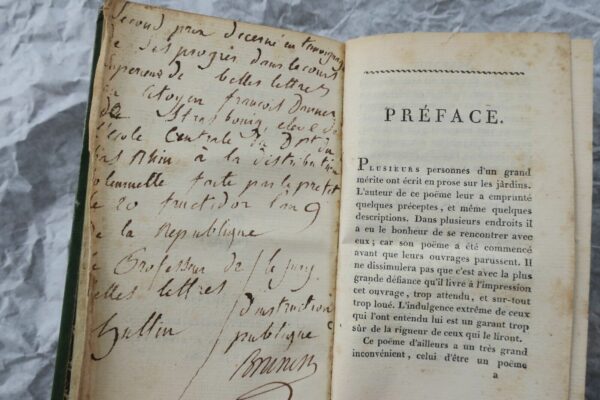 Second prix decerné en temoignage
de des progrès dans le cours
superieur de belles lettres
au citoyen françois
de Strasbourg, eleve de
l'ecole Centrale du Dptm du
bas Rhin à la distribution
solennelle faite par le prefet
le 20 fructidor l'an 9
de la Republique
le Professeur de / le jury
belles lettres / d'instruction
publique
PRÉFACE.
PLUSIEURS personnes d'un grand
mérite ont écrit en prose sur les jardins.
L'auteur de ce poëme leur a emprunté
quelques préceptes, et même quelques
descriptions. Dans plusieurs endroits il
a eu le bonheur de se rencontrer avec
eux; car son poëme a été commencé
avant que leurs ouvrages parussent. Il
ne dissimulera pas que c'est avec la plus
grande défiance qu'il livre à l'impression
cet ouvrage, trop attendu, et sur-tout
trop loué. L'indulgence extrême de ceux
qui l'ont entendu lui est un garant trop
sûr de la rigueur de ceux qui le liront.
Ce poëme d'ailleurs a un très grand
inconvénient, celui d'être un poëme
a